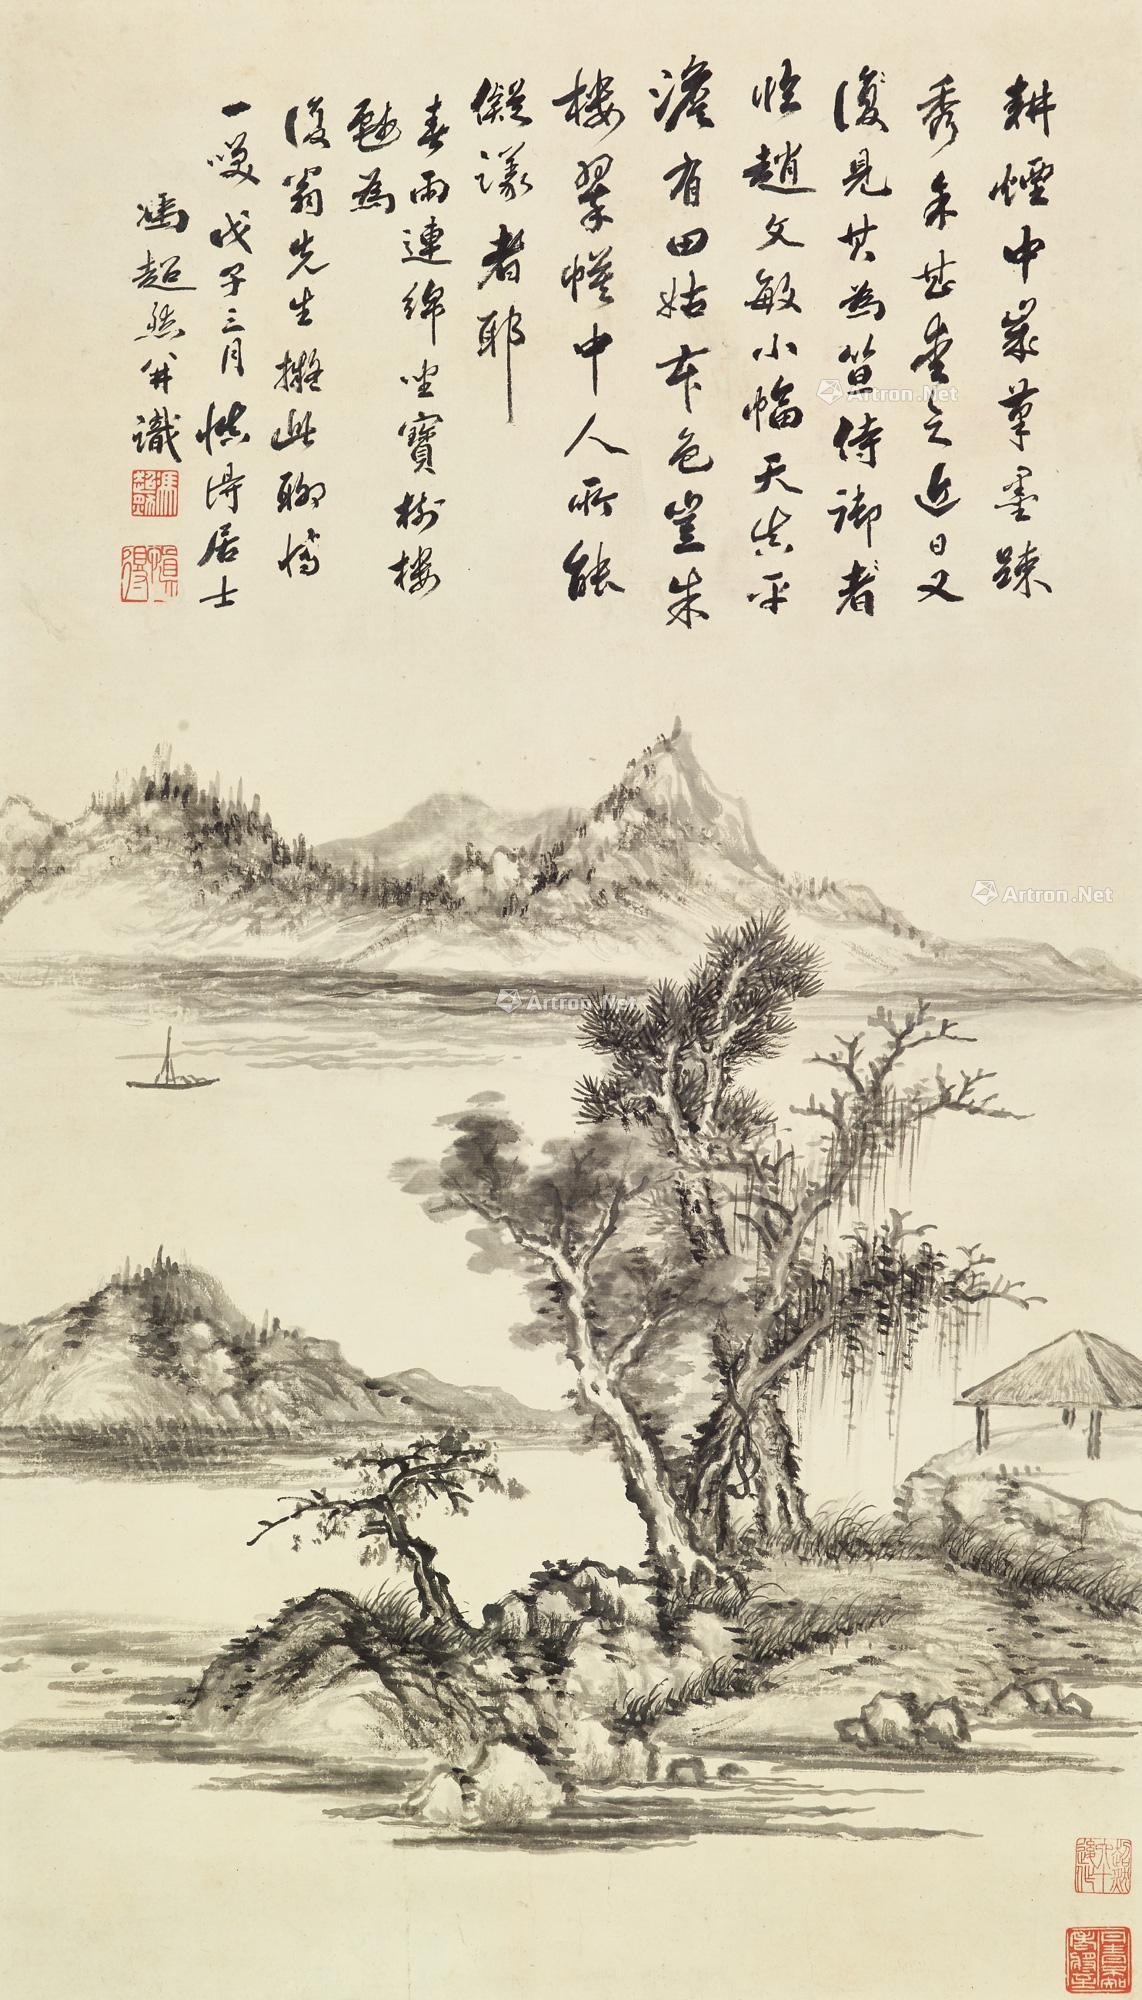 耕煙中歲筆墨疎
秀余甚愛之近日又
復見其為笪侍御者
臨趙文敏小幅天真平
澹有田姑本色豈朱
樓翠幙中人所能
儗議者耶
春雨連綿坐寶樹樓
為
復翁先生擬此聊博
一噱戊子三月慎得居士
馮超然并識
Artron.Net
Artron.Net
Artron.Net